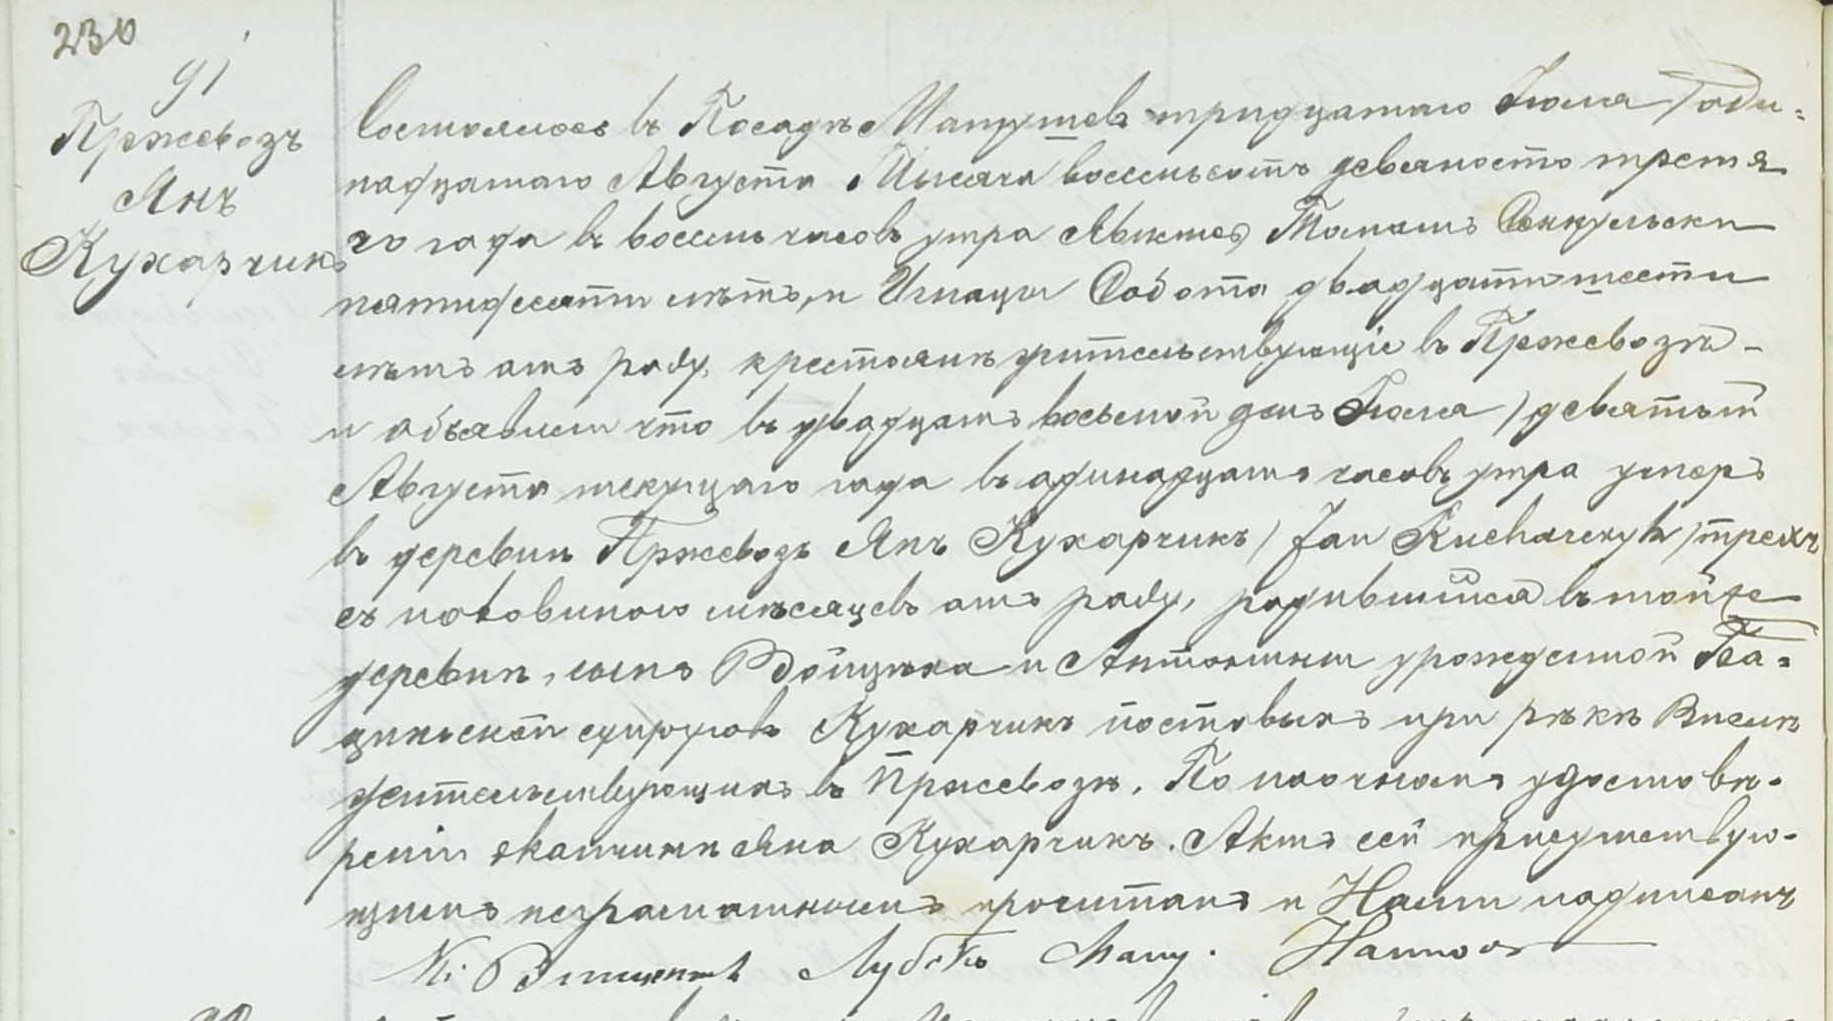 230
91
Пржевозъ
Янъ
Кухарчикъ
Состоялось въ Посадѣ Матушевъ тридцатаго Іюля / оди-
надцатаго Августа Тысяча восемьсотъ девяносто третья
го года въ восемь часовъ утра Явились Томашъ
пятидесяти лѣтъ, и Игнацы Собота двадцати шести
лѣтъ отъ роду, крестьяне жительствующіе въ Пржевозѣ -
и объявили что въ двадцать восьмой день Іюля / девятый
Августа текущаго года въ одинадцать часовъ утра умеръ
въ деревни Пржевозъ Янъ Кухарчикъ / Jan Kucharczyk / трехъ
съ половиною мѣсяцевъ отъ роду, родившійся въ тойже
деревни, сынъ Войцѣха и Антонины урожденной
супруговъ Кухарчикъ при рѣкѣ Вислѣ
жительствующихъ въ Пржевозѣ. По наочномъ удостовѣ-
реніи окончины Яна Кухарчикъ. Актъ сей присутствую-
щимъ неграмотнымъ прочитанъ и Нами подписанъ
Кс: